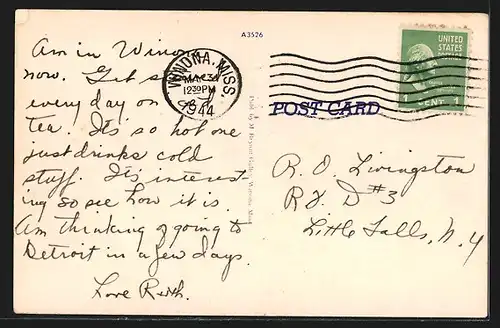 A3526
Am in Winona
now. Get s
every day on
tea. It's so hot one
just drinks cold
stuff. It's interest
ing so see how it is.
Am thinking of going to
Detroit in a few days.
Love Ruth.
WINONA, MISS.
12 30 PM
1944
UNITED
STATES
POSTAGE
CENT 1
POST CARD
R. O. Livingston
R F D #3
Little Falls, N. Y